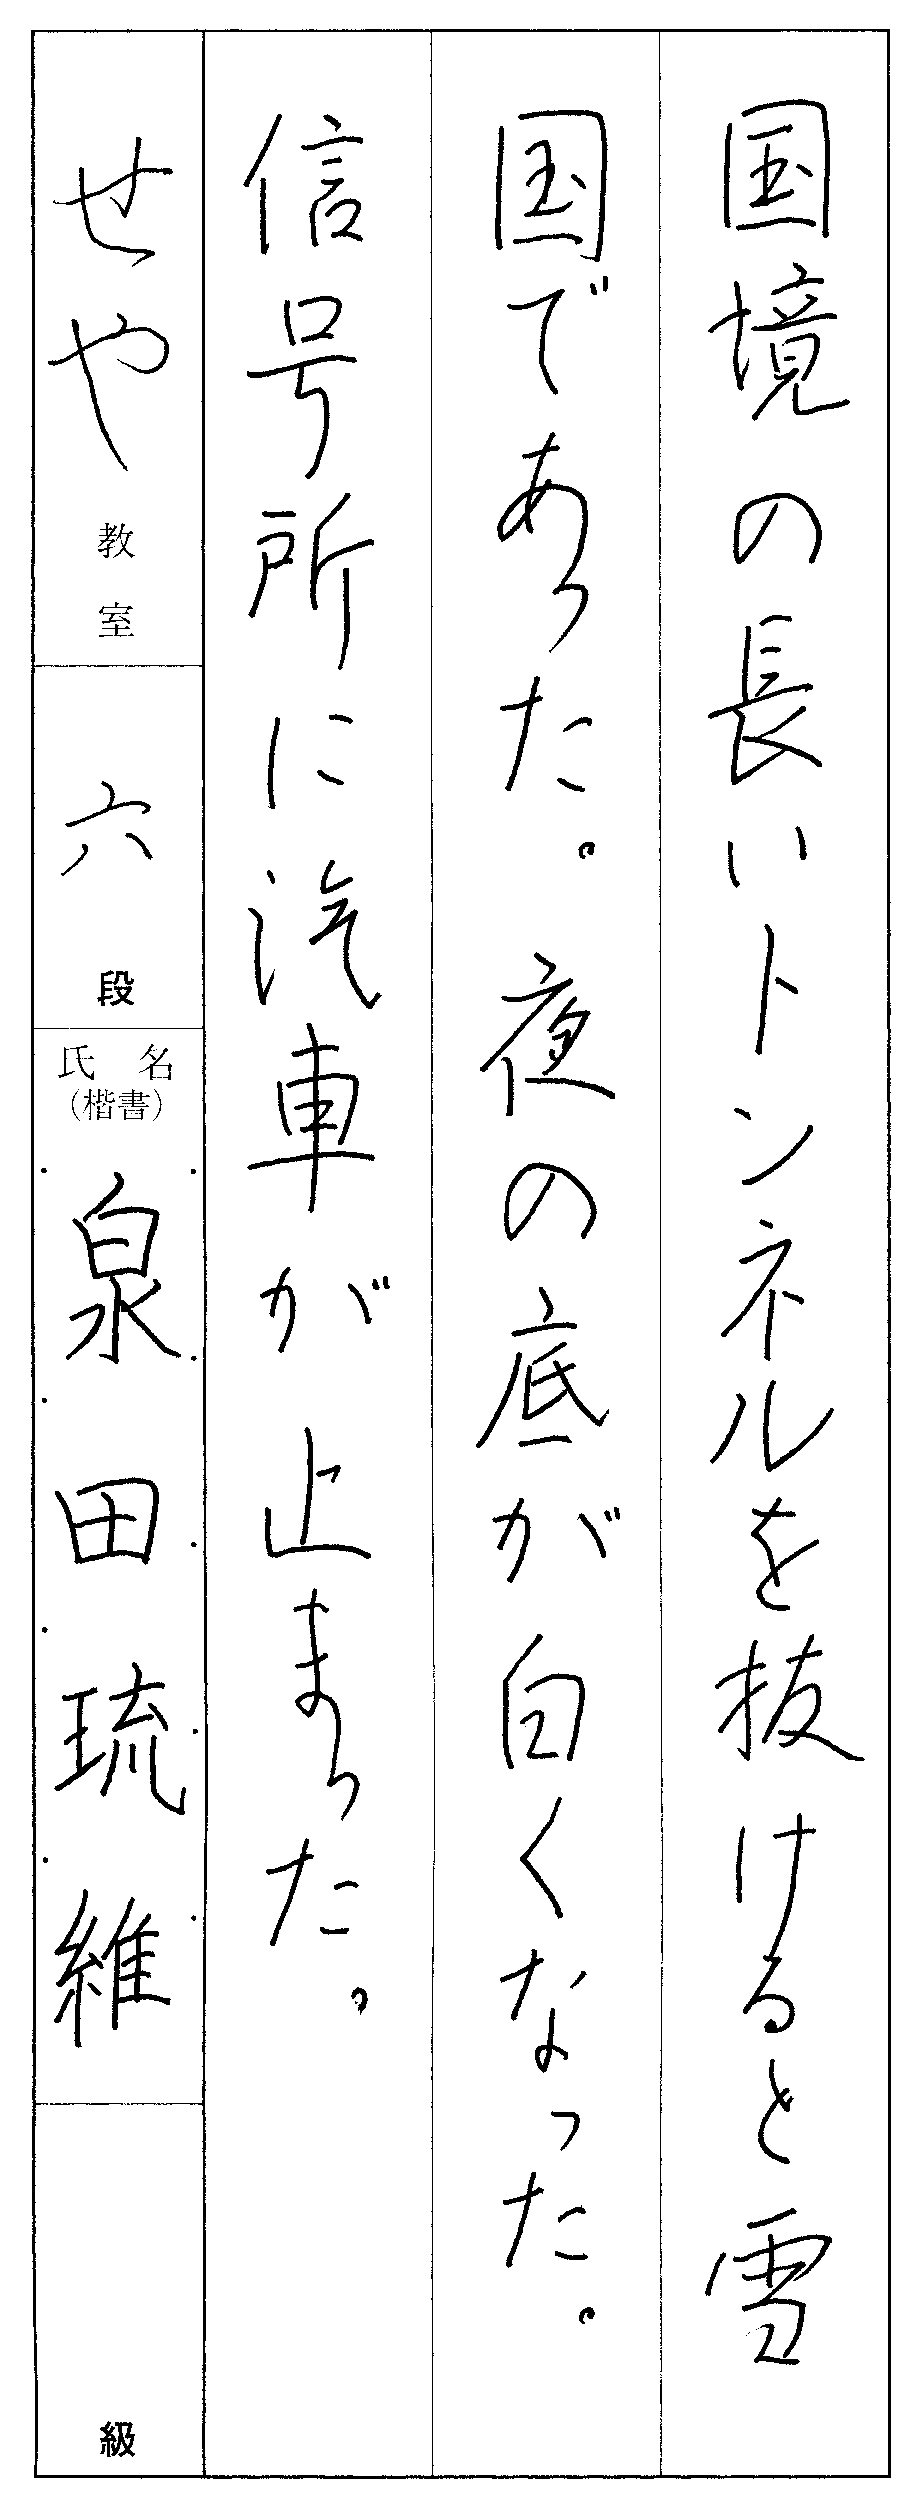 国境の長いトンネルを抜けると雪
国であった。夜の底が白くなった。
信号所に汽車が止まった。
せや教室
六段
氏名
(楷書)
泉田琉維
級